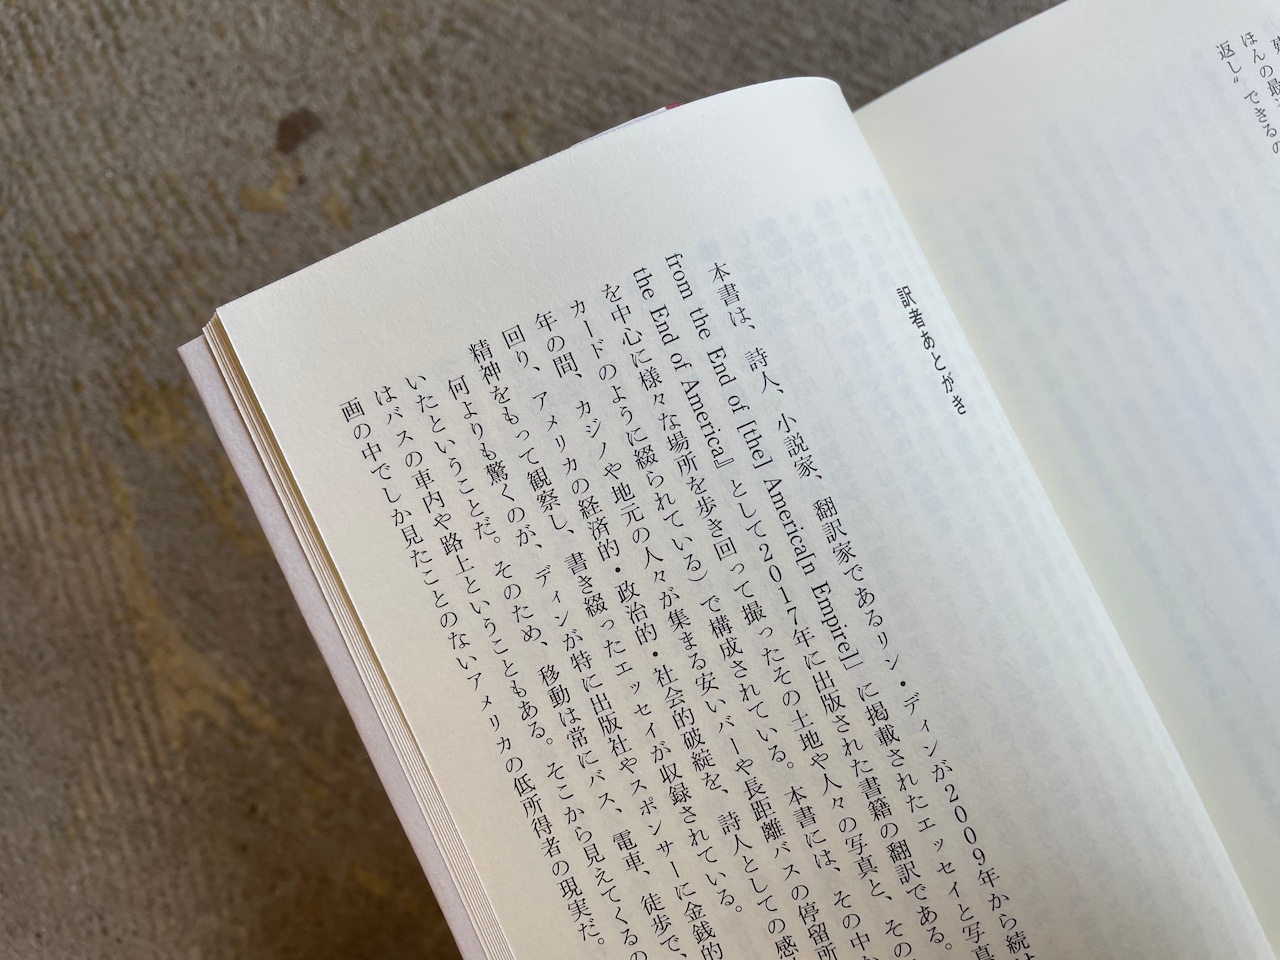 返し”できるの
ほんの最
訳者あとがき
本書は、詩人、小説家、翻訳家であるリン・ディンが2009年から続
from the End of [the] America[n Empire]」に掲載されたエッセイと写真
the End of America』として2017年に出版された書籍の翻訳である。
を中心に様々な場所を歩き回って撮ったその土地や人々の写真と、その
カードのように綴られている）で構成されている。本書には、その中か
年の間、カジノや地元の人々が集まる安いバーや長距離バスの停留所
回り、アメリカの経済的・政治的・社会的破綻を、詩人としての感
精神をもって観察し、書き綴ったエッセイが収録されている。
何よりも驚くのが、ディンが特に出版社やスポンサーに金銭的
いたということだ。そのため、移動は常にバス、電車、徒歩で、
はバスの車内や路上ということもある。そこから見えてくるの
画の中でしか見たことのないアメリカの低所得者の現実だ。